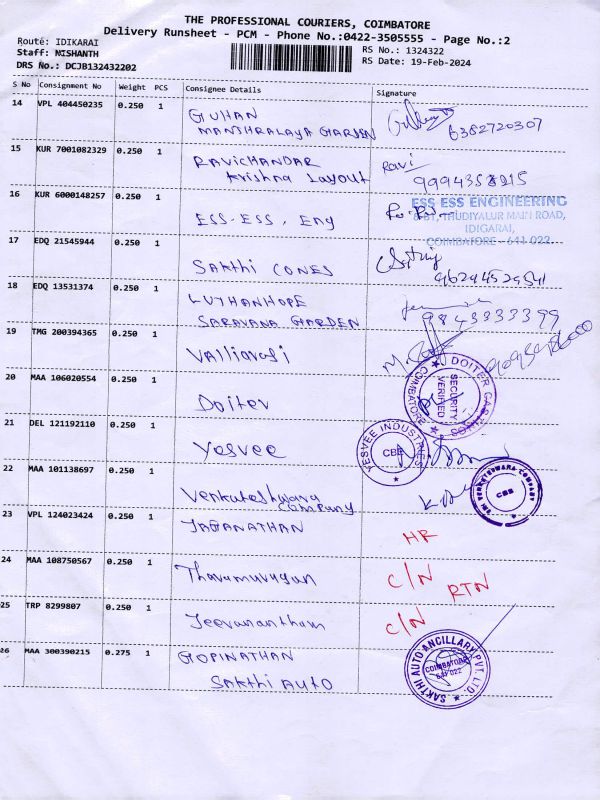 THE PROFESSIONAL COURIERS, COIMBATORE
Delivery Runsheet - PCM - Phone No.:0422-3505555 - Page No.:2
Route: IDIKARAI
RS No.: 1324322
Staff: NISHANTH
RS Date: 19-Feb-2024
DRS No.: DCJB132432202
S No Consignment No Weight PCS Consignee Details Signature
14 VPL 404450235 0.250 1 GUHAN
MANTHRALAYA GARDEN 6382720307
15 KUR 7001082329 0.250 1 RAVICHANDAR Ravi
Krishna Layout
16 KUR 6000148257 0.250 1 ESS-ESS. Eng
ESS ESS ENGINEERING
THUDIYALUR MAIN ROAD,
IDIGARAI,
COIMBATORE - 641 022.
17 EDQ 21545944 0.250 1 SAKTHI CONES
18 EDQ 13531374 0.250 1 LUTHANHOPE
SARAVANA GARDEN 9843333399
19 TMG 200394365 0.250 1 Valliarasi
20 MAA 106020554 0.250 1 Doiter
DOITER CAS
SECURITY VERIFIED
COIMBATORE
21 DEL 121192110 0.250 1 Yesvee
YESVEE INDUSTRIES
CBE
22 MAA 101138697 0.250 1 Venkateshwara
company
SRI VENKATESHWARA COMPANY
CBE
23 VPL 124023424 0.250 1 JAGANATHAN HR
24 MAA 108750567 0.250 1 Tharumurugan C/N RTN
25 TRP 8299807 0.250 1 Jeevanantham C/N
26 MAA 300390215 0.275 1 GOPINATHAN
SAKTHI AUTO
SAKTHI AUTO ANCILLARY PVT. LTD.
COIMBATORE
641 022